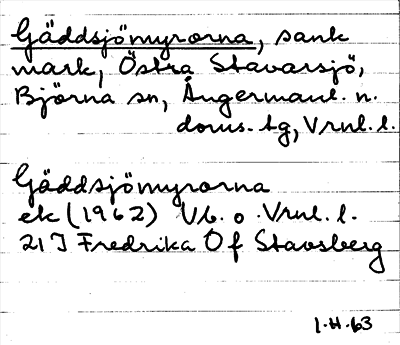 Gäddsjömyrorna, sank
mark, Östra Stavarsjö,
Björna sn, Ångermanl. n.
doms. bg, Vrnl. l.
Gäddsjömyrorna
ek (1962) Vb. o. Vrnl. l.
21J Fredrika Ö f Stavsberg
1.H.63